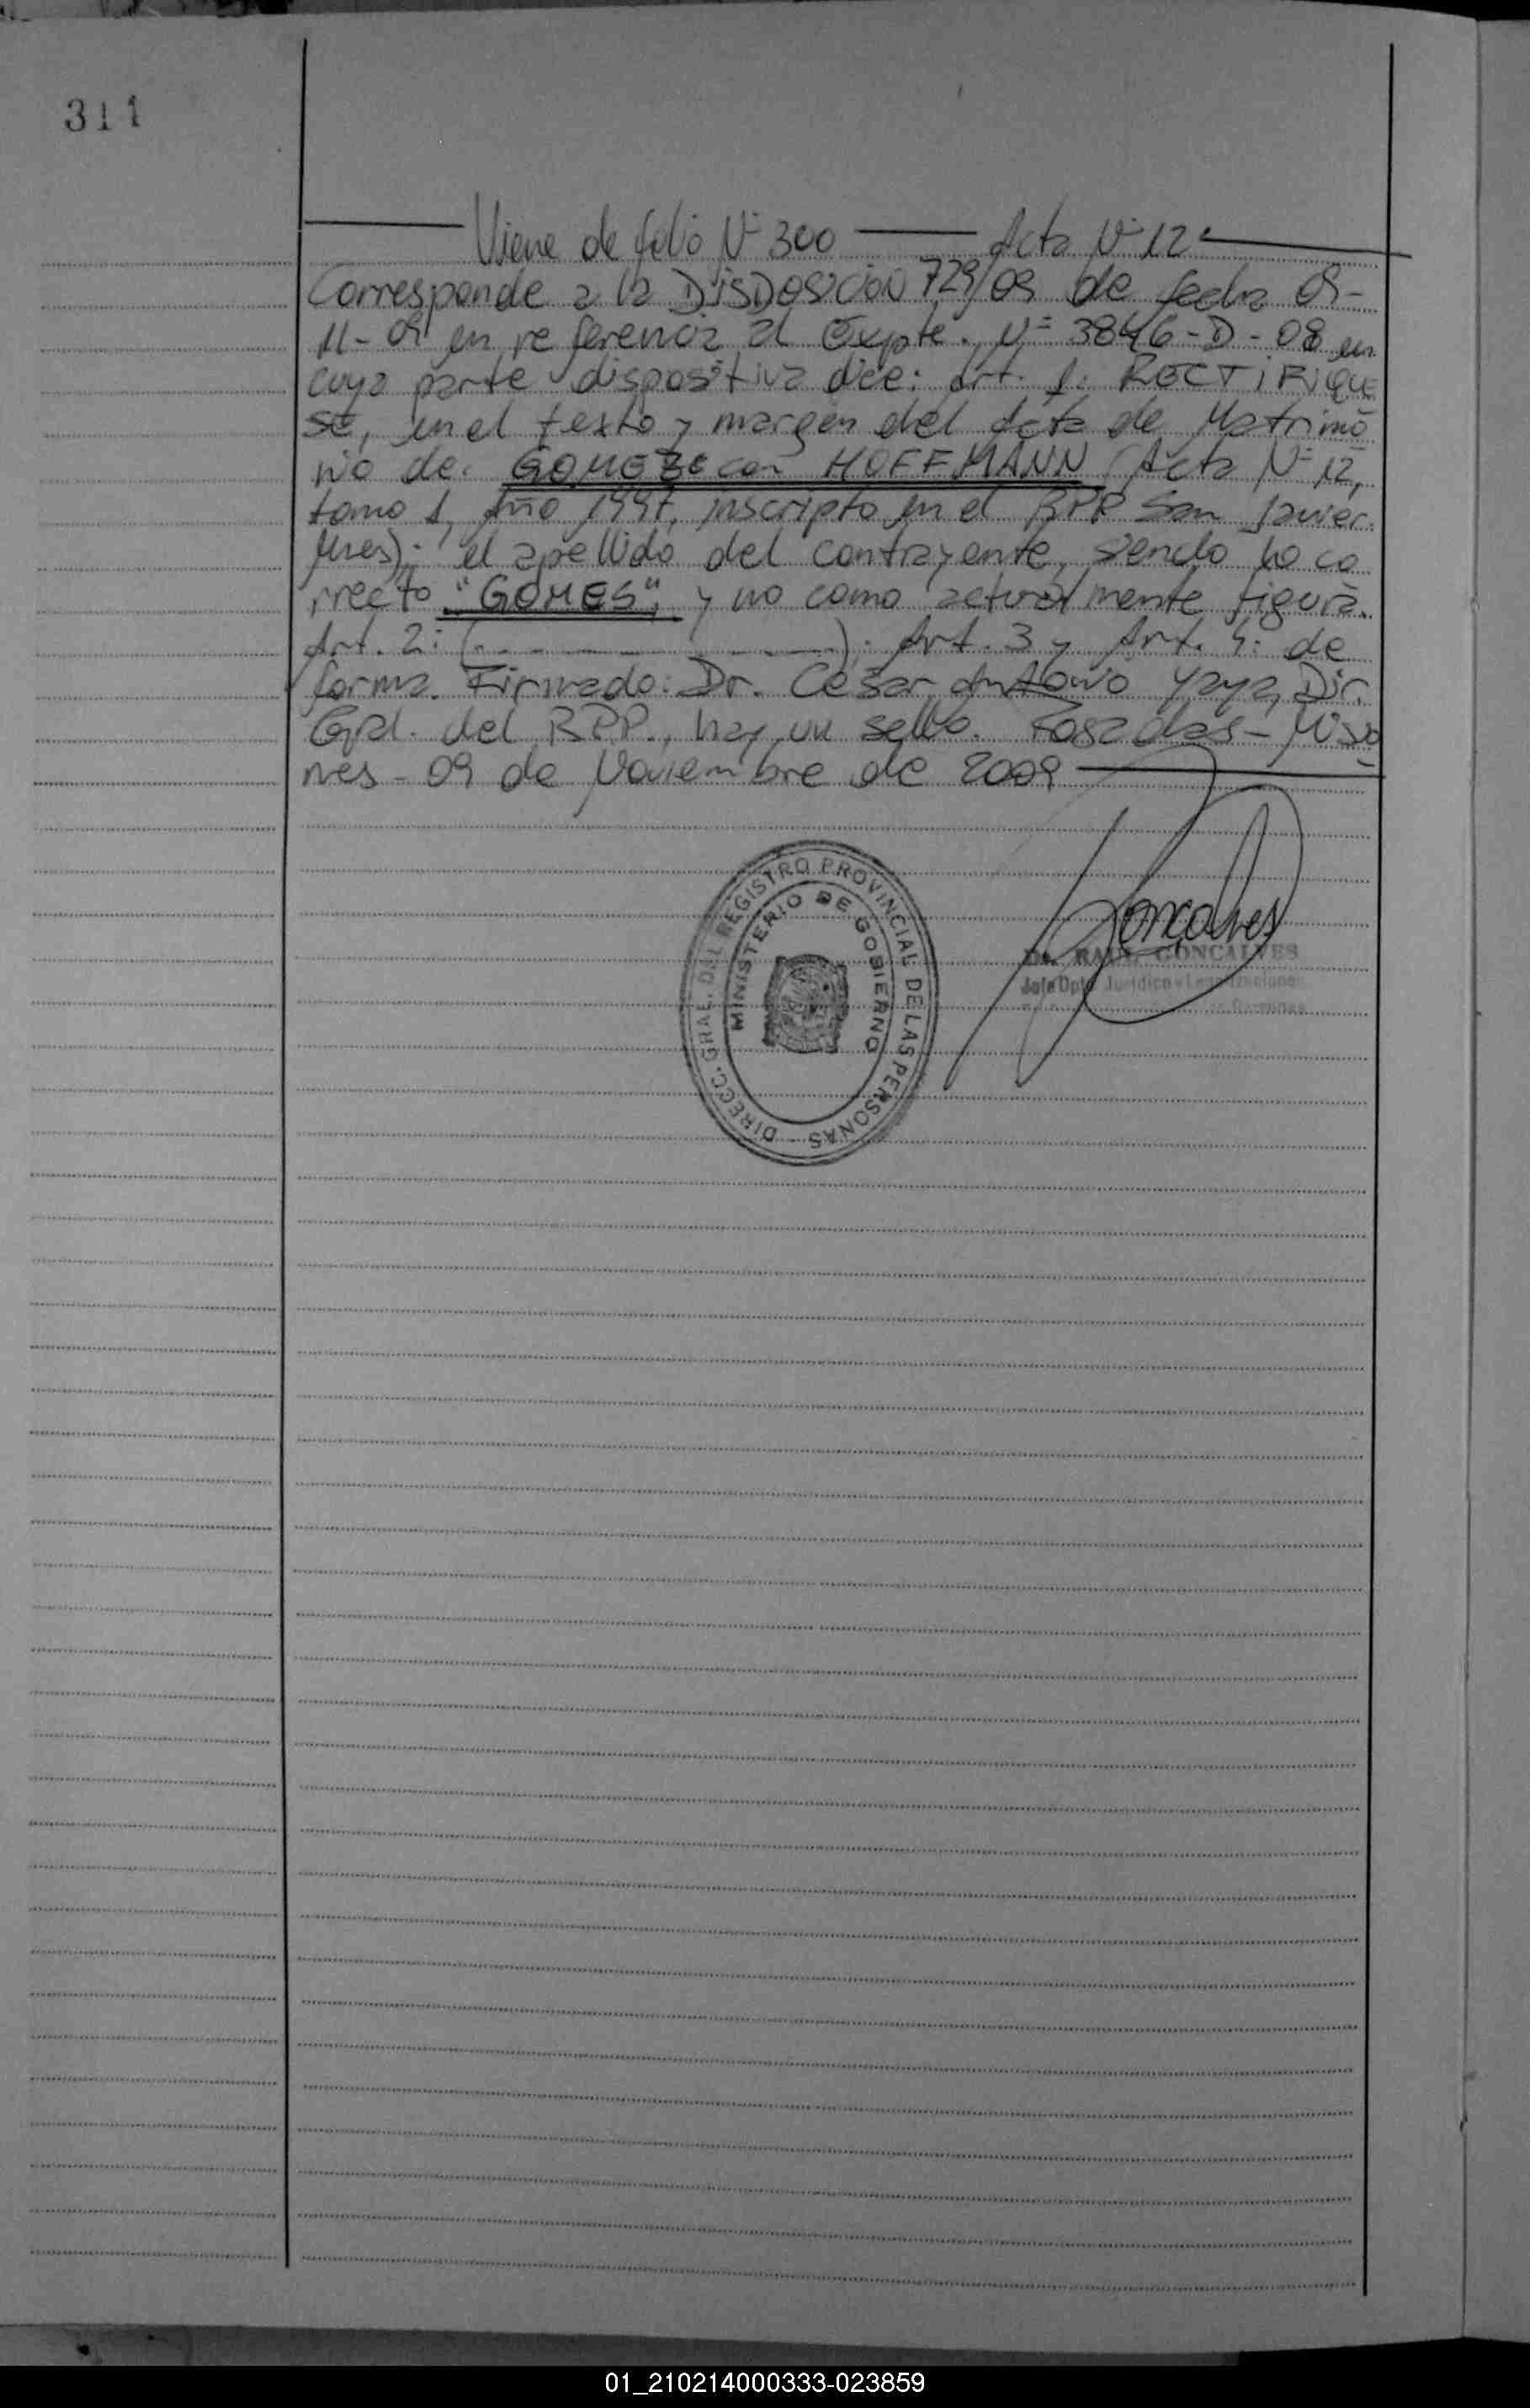 311
Viene de folio Nº 300 Acta Nº 12
Corresponde a la DISPOSICION 729/09 de fecha 09-
11-09 en referencia al Expte. Nº 3846-D-08 en
cuya parte dispositiva dice: Art. 1: RECTIFIQUE
SE, en el texto y margen del Acta de Matrimo
nio de: GOMEZ con HOFFMANN, Acta Nº 12,
tomo 1, Año 1997, inscripto en el RPP San Javier
Mnes); el apellido del contrayente, siendo lo co
rrecto "GOMES", y no como actualmente figura.
Art. 2: (. - - - - - -). Art. 3 y Art. 4: de
forma. Firmado: Dr. Cesar Antonio Yaya, Dir.
Gral. del RPP., hay un sello. Posadas - Misio
nes - 09 de Noviembre de 2009
DIRECC. GRAL. DEL REGISTRO PROVINCIAL DE LAS PERSONAS -
MINISTERIO DE GOBIERNO
Goncalves
Dr. RAUL GONCALVES
Jefe Dpto. Juridico y Legalizaciones
01_210214000333-023859